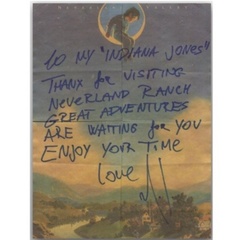 to MY "INDIANA JONES"
THANX for VISITING
NEVERLAND RANCH
GREAT ADVENTURES
ARE WAITING for YOU
ENJOY YOUR TIME
Love